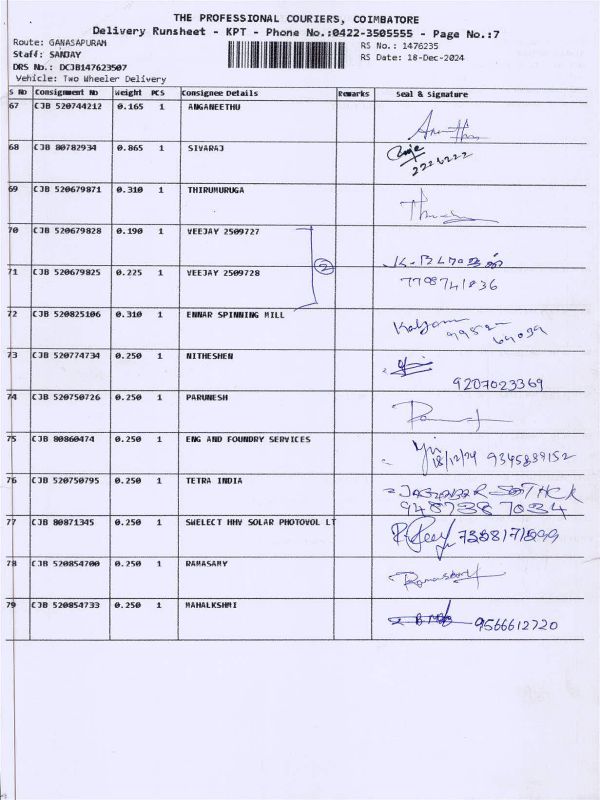 THE PROFESSIONAL COURIERS, COIMBATORE
Delivery Runsheet - KPT - Phone No.:0422-3505555 - Page No.:7
Route: GANASAPURAM
RS No.: 1476235
Staff: SANJAY
RS Date: 18-Dec-2024
DRS No.: DCJB147623507
Vehicle: Two Wheeler Delivery
S No Consignment No Weight PCS Consignee Details Remarks Seal & Signature
67 CJB 520744212 0.165 1 ANGANEETHU
68 CJB 80782934 0.865 1 SIVARAJ
69 CJB 520679871 0.310 1 THIRUMURUGA
70 CJB 520679828 0.190 1 VEEJAY 2509727
2
71 CJB 520679825 0.225 1 VEEJAY 2509728
72 CJB 520825106 0.310 1 ENNAR SPINNING MILL
Kalyani
73 CJB 520774734 0.250 1 NITHESHEN
9207023369
74 CJB 520750726 0.250 1 PARUNESH
75 CJB 80860474 0.250 1 ENG AND FOUNDRY SERVICES
18/12/24 9345839152
76 CJB 520750795 0.250 1 TETRA INDIA
9487387034
77 CJB 80871345 0.250 1 SWELECT HHV SOLAR PHOTOVOL LT
78 CJB 520854700 0.250 1 RAMASAMY
Ramasamy
79 CJB 520854733 0.250 1 MAHALKSHMI
9566612720